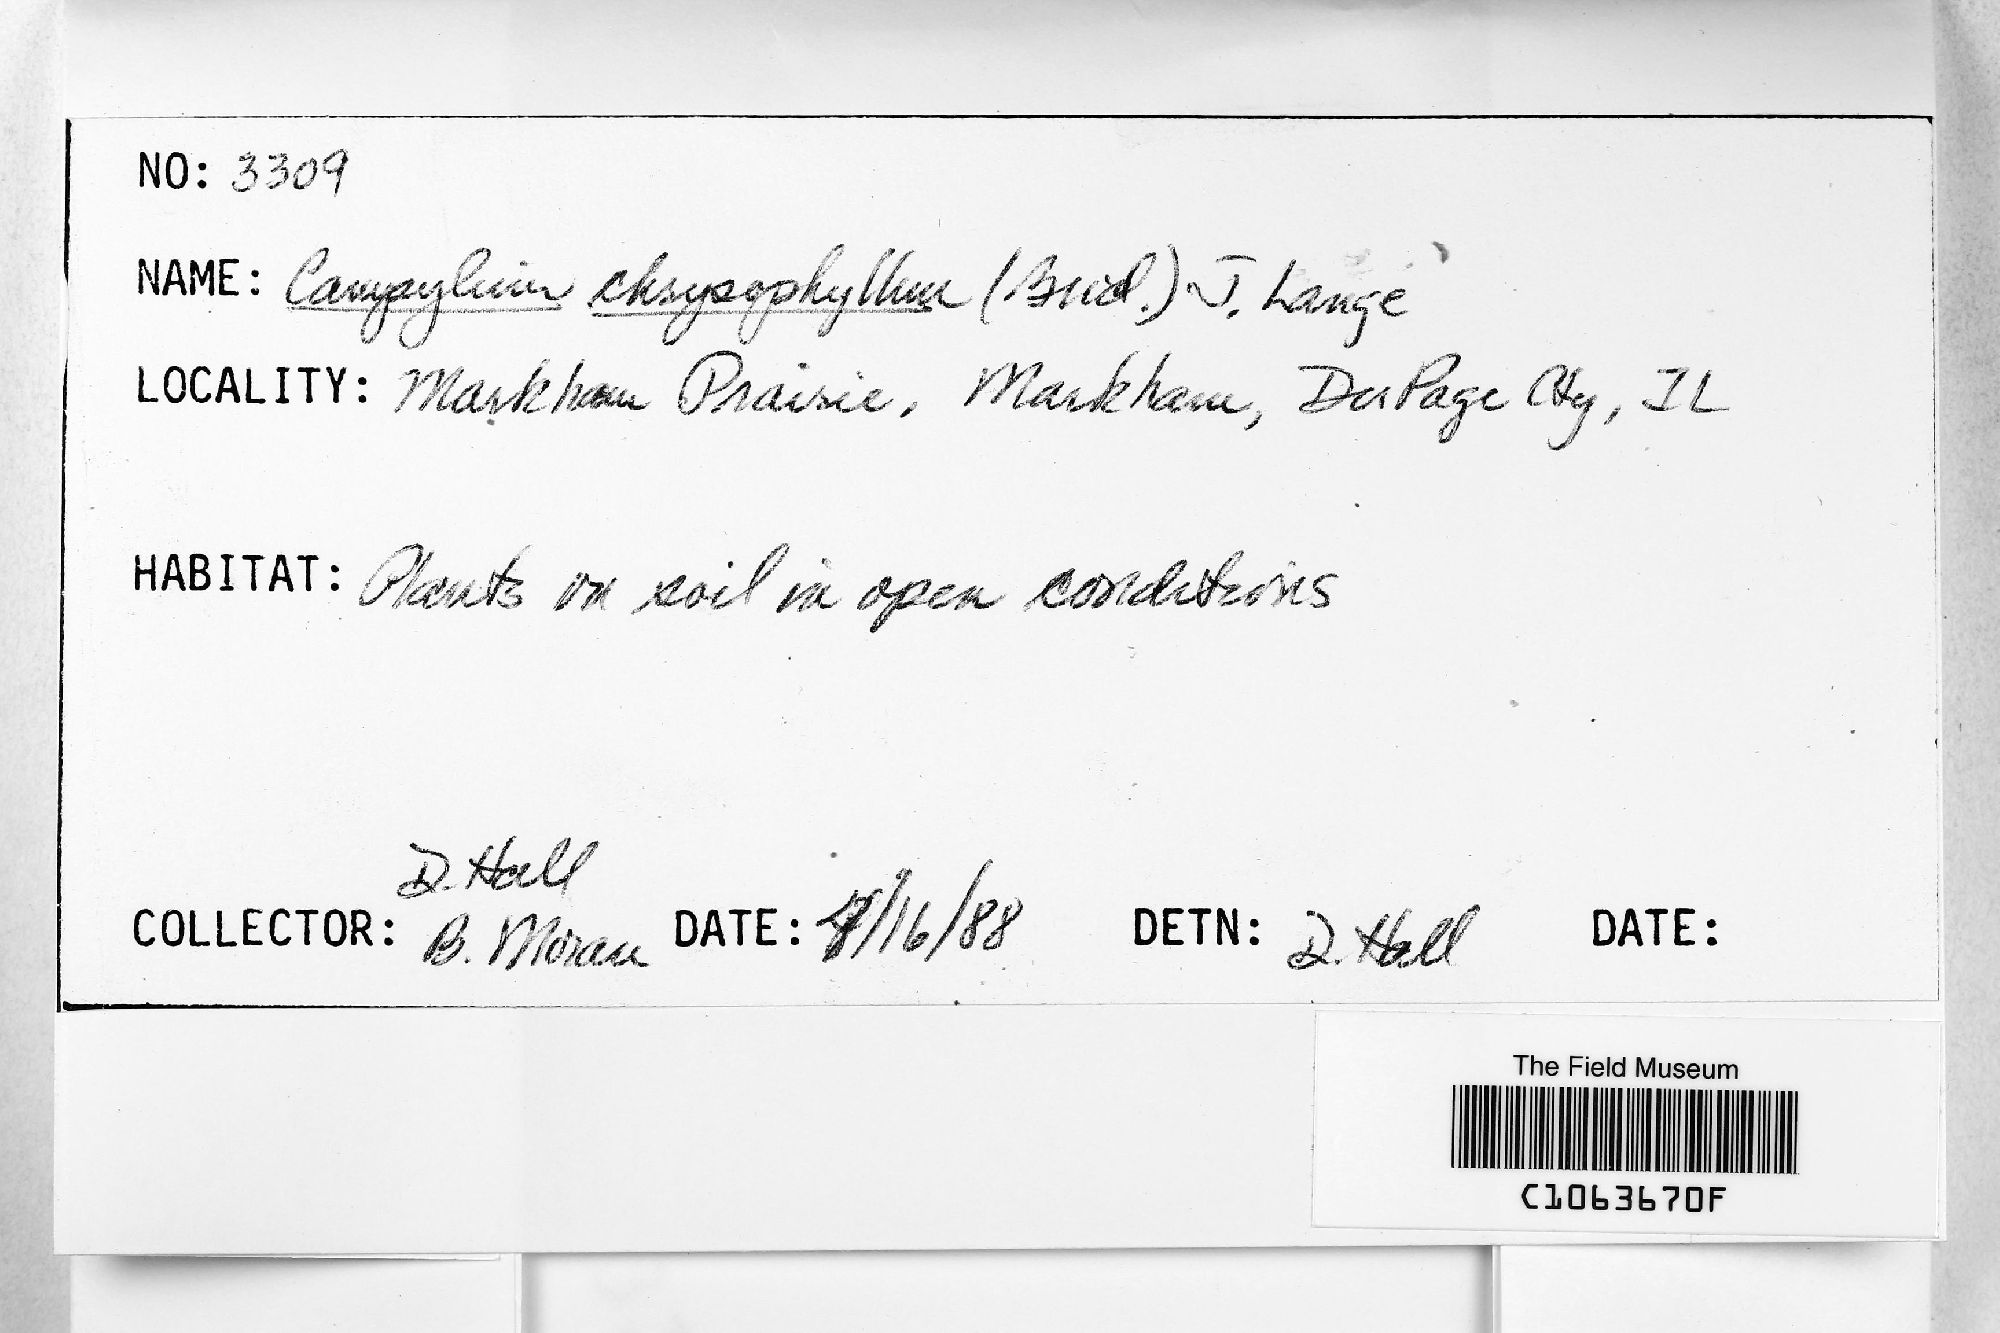 NO: 3309
NAME: Campylium chrysophyllum (Brid.) J. Lange
LOCALITY: Markham Prairie, Markham, DuPage Cty, IL
HABITAT: Plants on soil in open conditions
D. Hall
COLLECTOR: B. Moran DATE: /16/88 DETN: D. Hall DATE:
The Field Museum
C1063670F